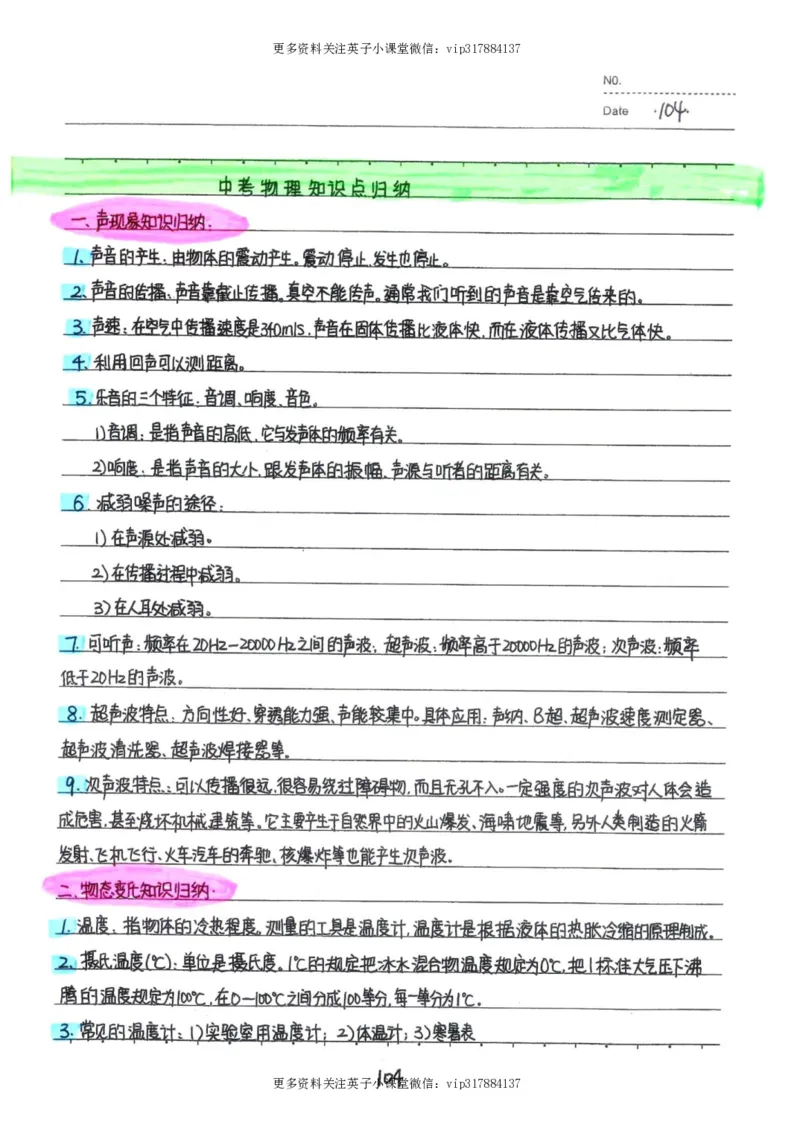 更多资料关注英子小课堂微信：vip317884137
NO.
Date ·104·
中考物理知识点归纳
一、声现象知识归纳：
1、声音的产生：由物体的震动产生。震动停止，发生也停止。
2、声音的传播：声音靠截止传播。真空不能传声。通常我们听到的声音是靠空气传来的。
3. 声速：在空气中传播速度是340m/s，声音在固体传播比液体快，而在液体传播又比气体快。
4、利用回声可以测距离。
5、乐音的三个特征：音调、响度、音色。
1)音调：是指声音的高低，它与发声体的频率有关。
2)响度：是指声音的大小，跟发声体的振幅、声源与听者的距离有关。
6. 减弱噪声的途径：
1)在声源处减弱。
2)在传播过程中减弱。
3)在人耳处减弱。
7. 可听声：频率在20Hz-20000Hz之间的声波；超声波：频率高于20000Hz的声波；次声波：频率
低于20Hz的声波。
8. 超声波特点：方向性好、穿透能力强、声能较集中。具体应用：声纳、B超、超声波速度测定器、
超声波清洗器、超声波焊接器等。
9. 次声波特点：可以传播很远，很容易绕过障碍物，而且无孔不入。一定强度的次声波对人体会造
成危害，甚至毁坏机械建筑等。它主要产生于自然界中的火山爆发、海啸地震等，另外人类制造的火箭
发射、飞机飞行、火车汽车的奔驰、核爆炸等也能产生次声波。
二、物态变化知识归纳·
1. 温度：指物体的冷热程度。测量的工具是温度计，温度计是根据液体的热胀冷缩的原理制成。
2、摄氏温度(℃)：单位是摄氏度。1℃的规定把冰水混合物温度规定为0℃，把1标准大气压下沸
腾的温度规定为100℃，在0—100℃之间分成100等分，每一等分为1℃。
3. 常见的温度计：1)实验室用温度计；2)体温计；3)寒暑表
104
更多资料关注英子小课堂微信：vip317884137